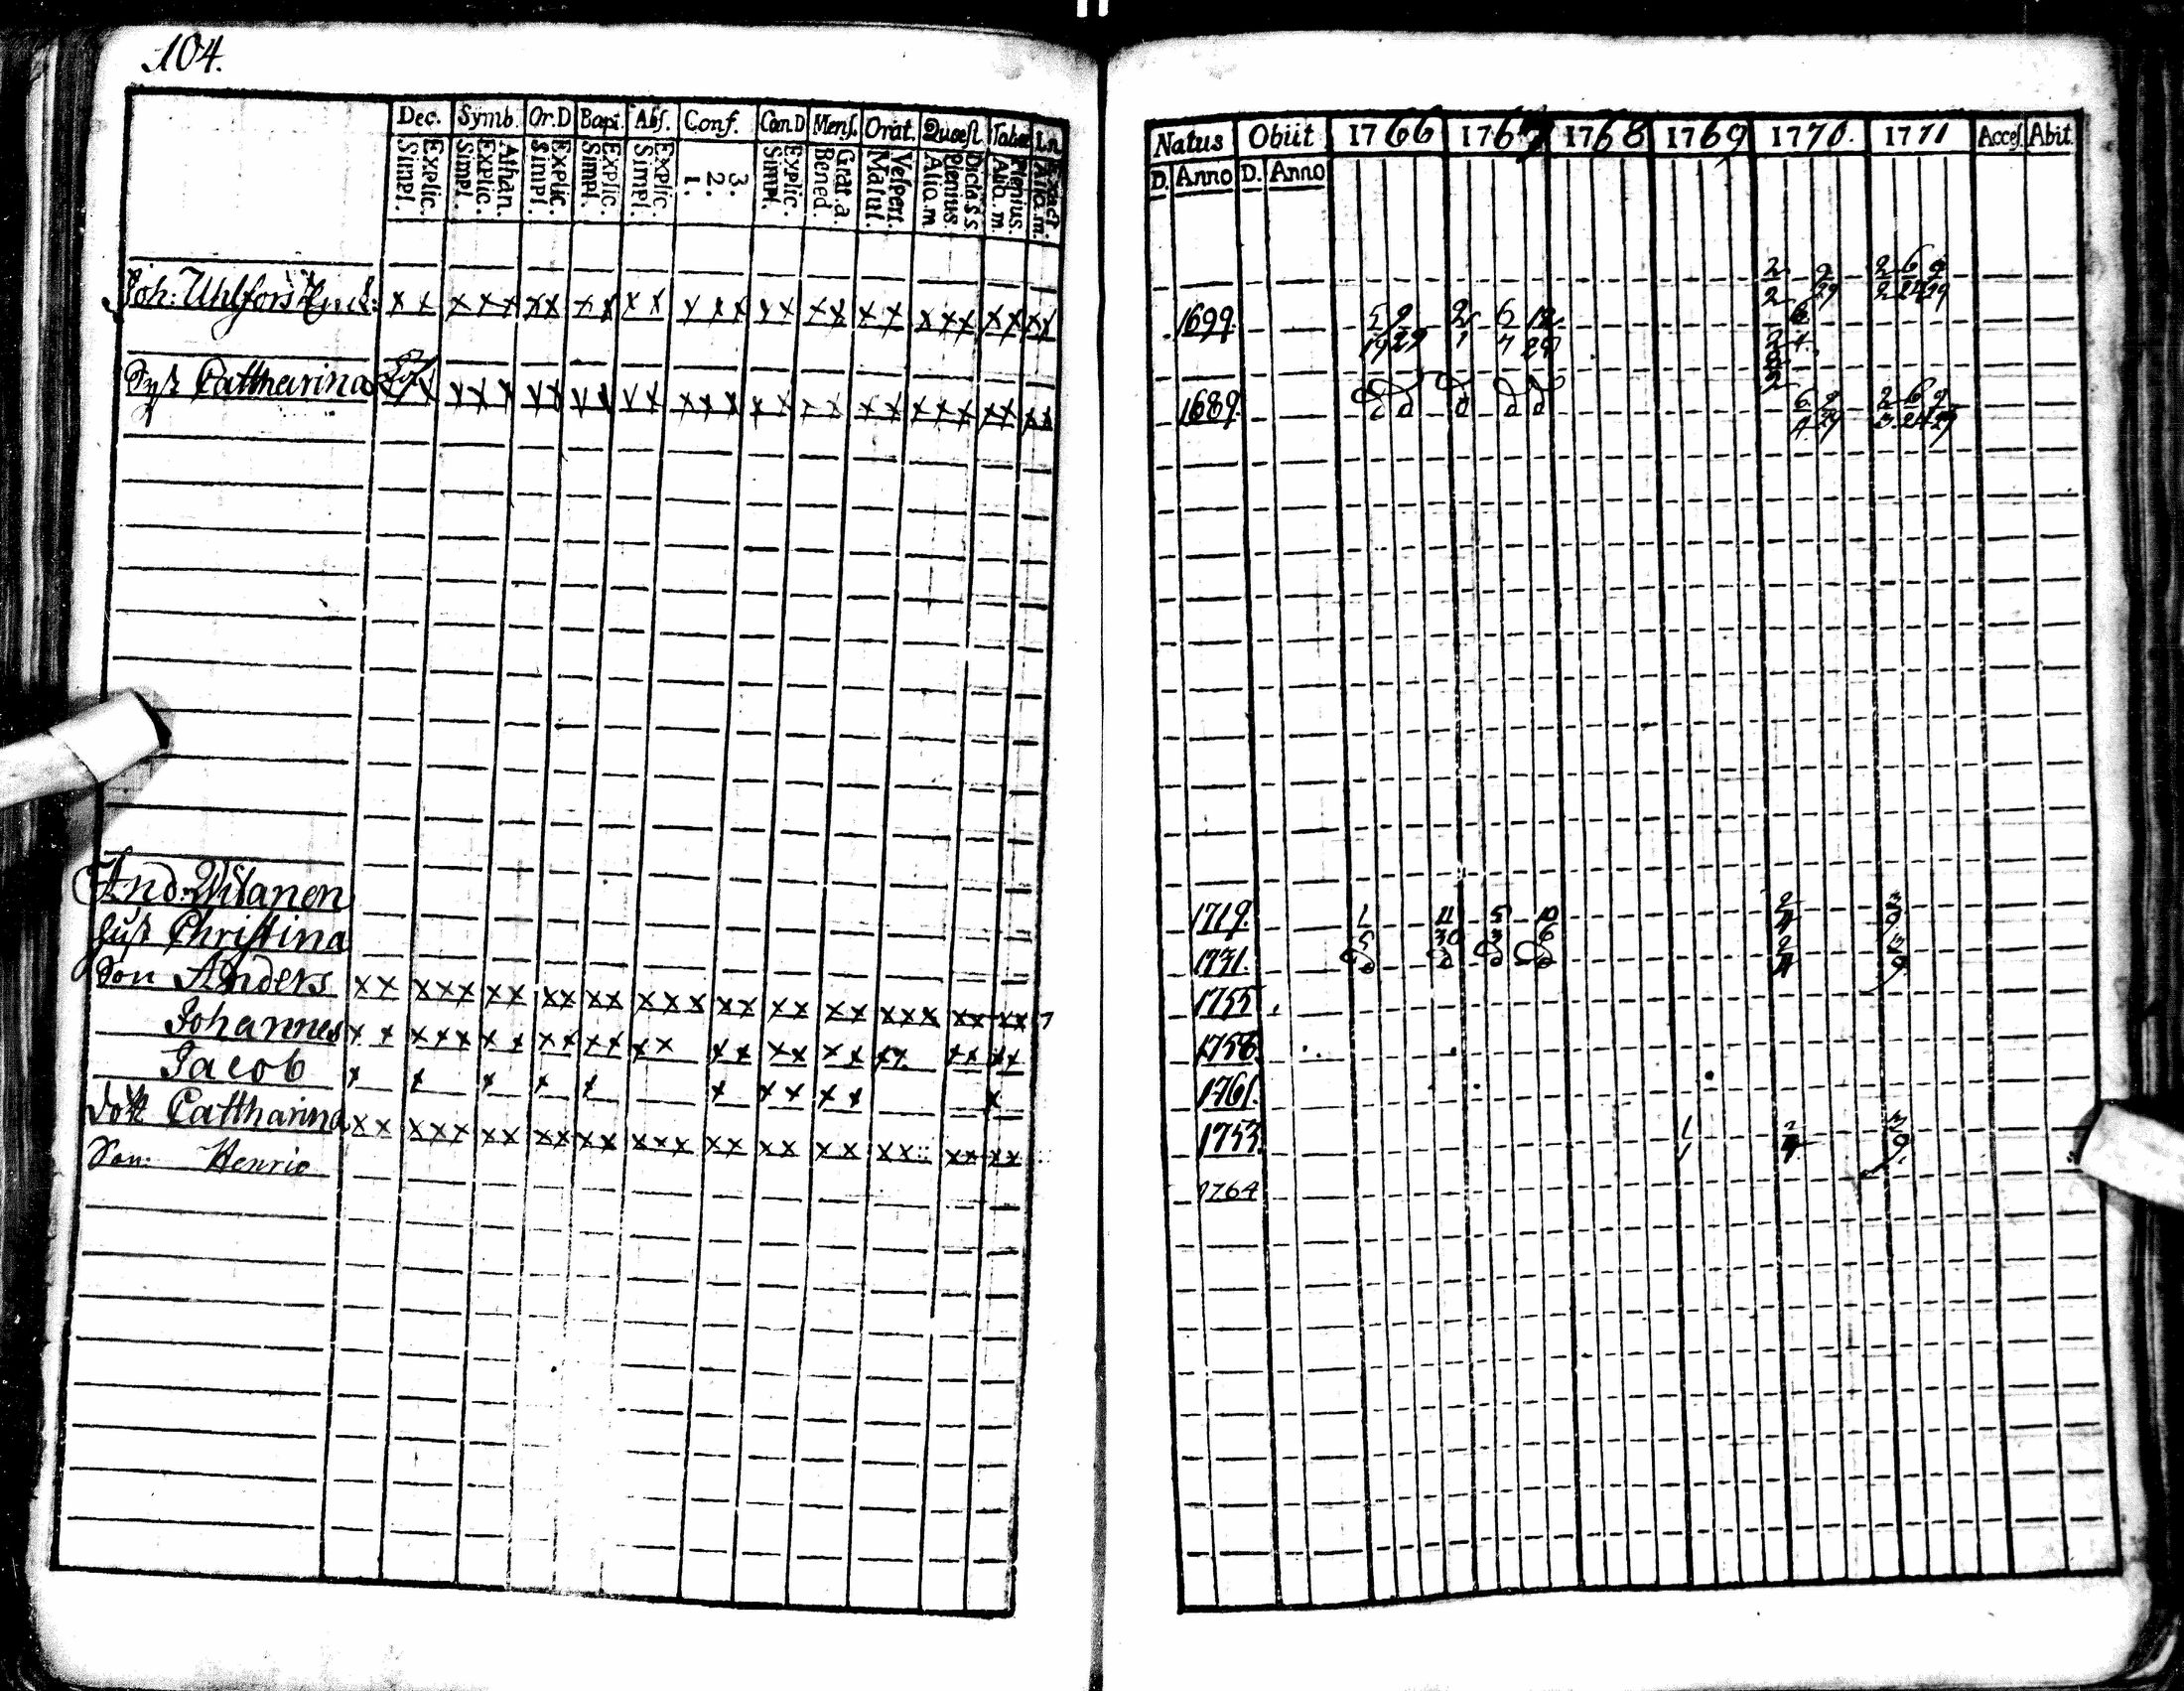 104.
Dec. Symb. Or.D Bapt. Abs. Conf. Can.D Mens. Orat. Quæst. Tabul. In.
Explic. Simpl. Athan. Explic. Simpl. Explic. Simpl. Explic. Simpl. Explic. Simpl. 3. 2. 1. Explic. Simpl. Grat.a. Bened. Vespert. Matut. Dicta S.S. Plenius. Aliq.m Plenius. Aliq.m. Exact. Aliq.m.
Joh: Uhlfors
x x x x x x x x x x x x x x x x x x x x x x x x x x x
Syst Cattharina
x x x x x x x x x x x x x x x x x x x x x x x x x x
And: Vitanen
Hust Christina
Son Anders x x x x x x x x x x x x x x x x x x x x x x x x x x 7
Johannes x x x x x x x x x x x x x x x x x x x x x x x x
Jacob x x x x x x x x x x x
dott Cattharina x x x x x x x x x x x x x x x x x x x x x x x x x x
Son: Henric
Natus Obiit 1766 1767 1768 1769 1770. 1771 Acces. Abit.
D. Anno D. Anno
2 9 2 6 9
2 29 2 24 29
1699. 5 9 2 6 12 6
19 29 1 7 29 2 4
1689. 6 9 2 6 9
4 29 3 24 29
1719. 1 11 5 10 2
5 30 3 6 4 9
1731. 2
4 9
1755
1758
1761.
1753. 1 2
1 4 9
1764